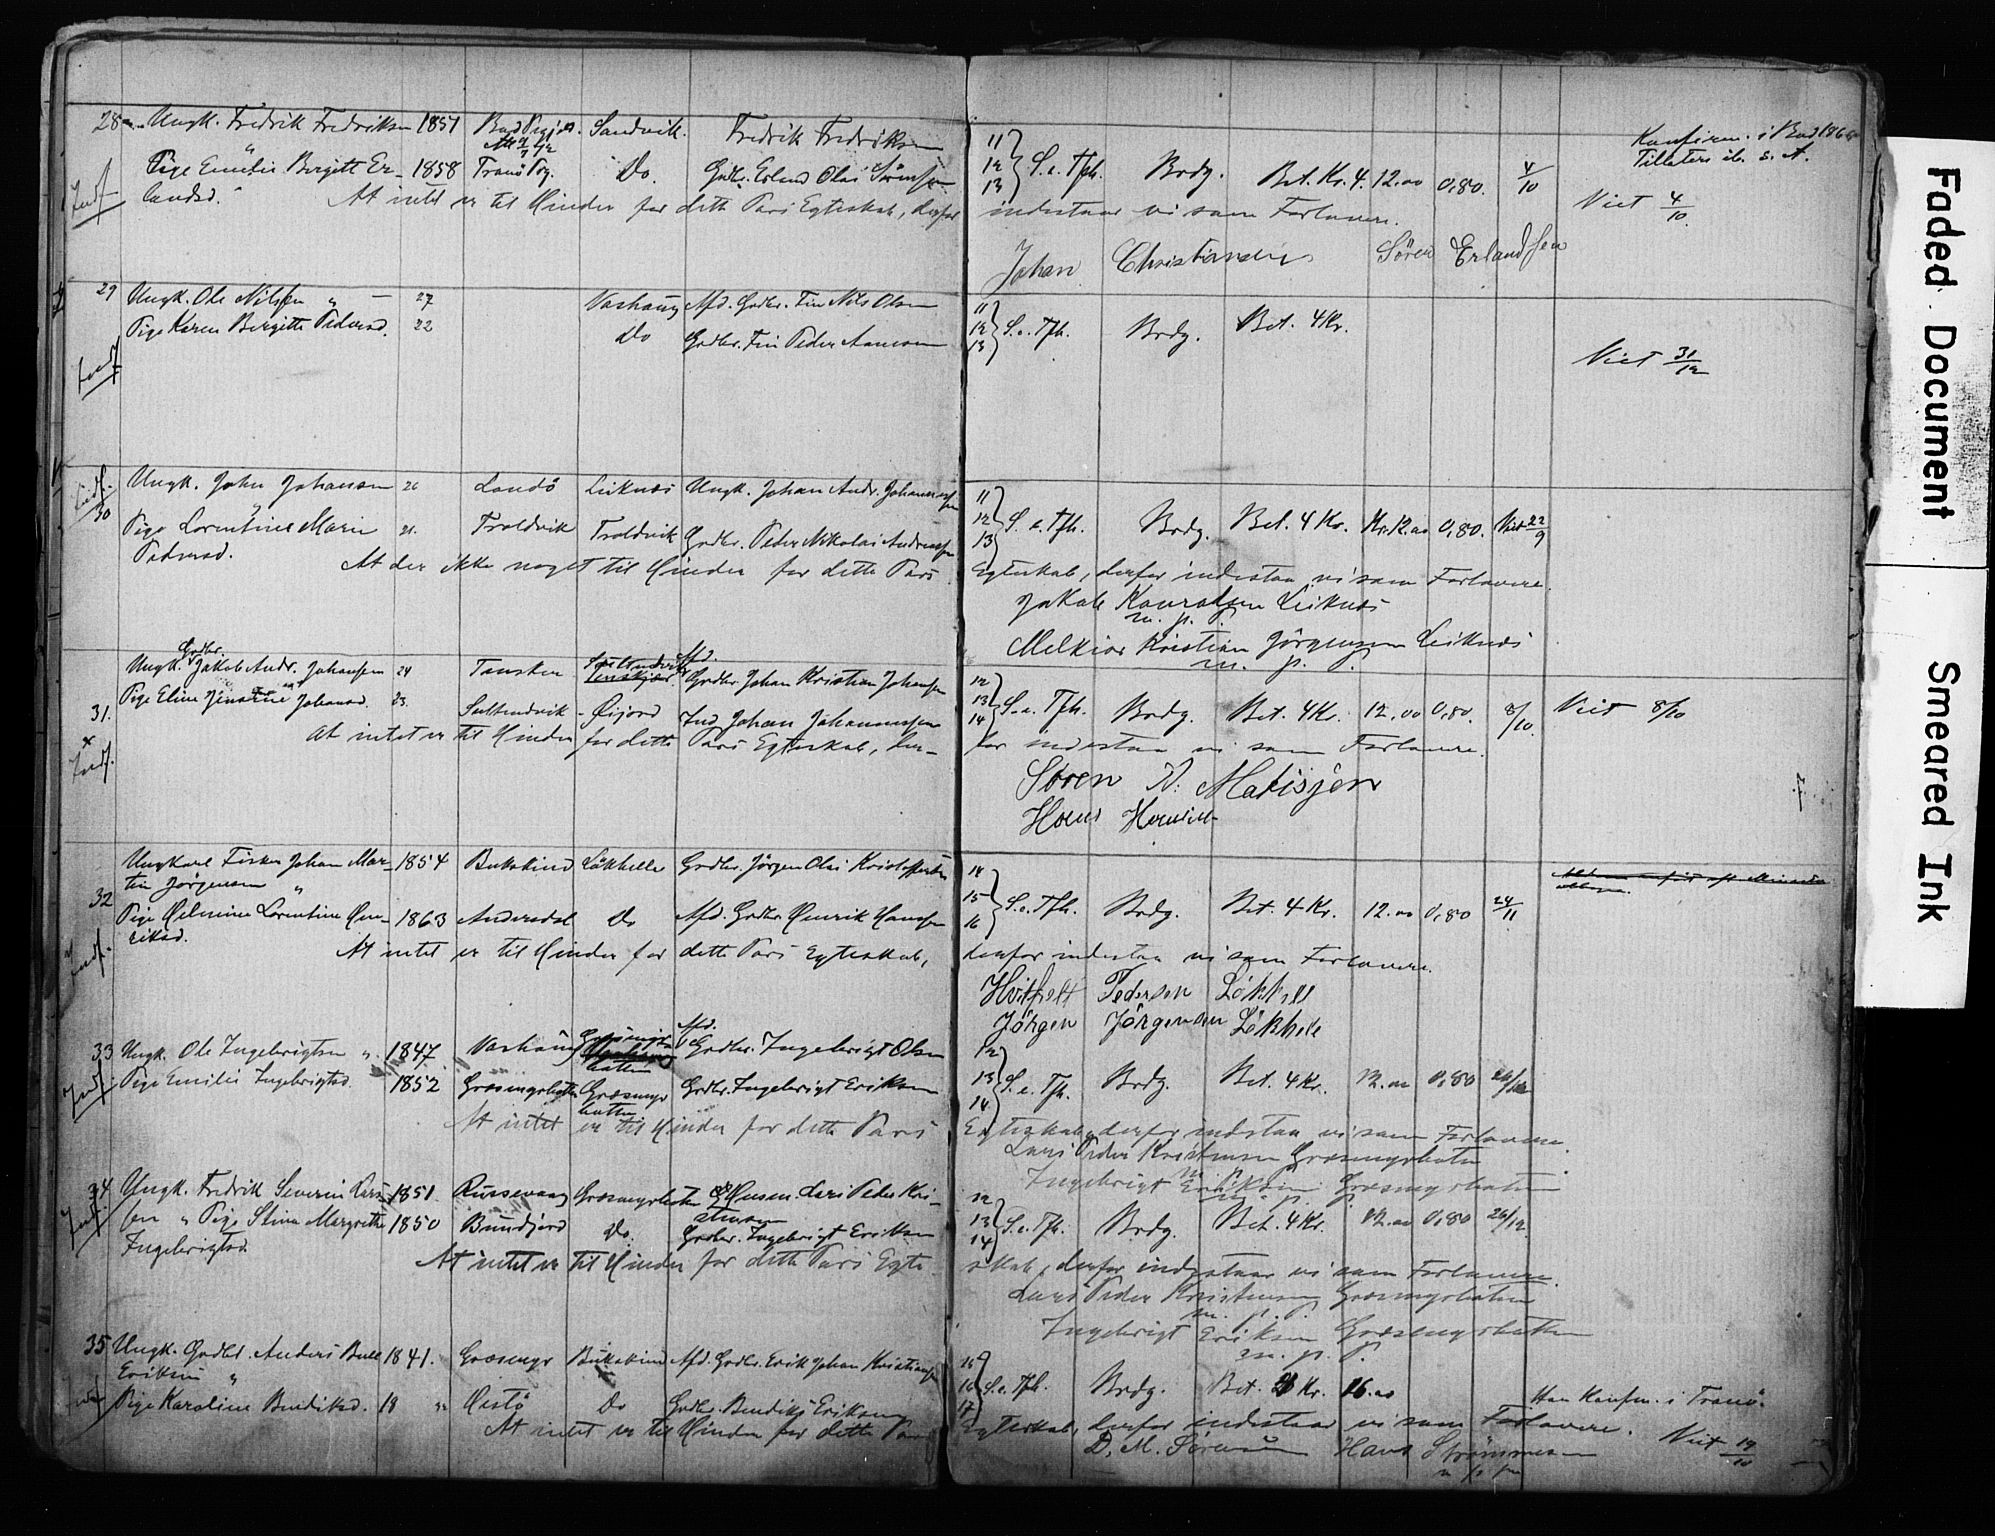 28 Ungk. Fredrik Fredriksen 1851 Sandvik. Fredrik Fredriksen
Pige Emilie Birgitt Er- 1858 Tranö Do. Gdbr. Erlend Olai Sörensen
landsd. At intet er til Hinder for dette Pars Egteskab, derfor
Indf
11 12 13 S. e. Tfh. Brdg. Bet. Kr. 4. 12.00 0,80. 4/10
Konfirm. i
Viet 4/10
indestaar vi som Forlovere.
Johan Christiansen Sören Erlandsen
29 Ungk. Ole Nilsen " 27 Vashaug Afd. Grdbr. Fin Nils Olsen
Pige Karen Birgitte Pedersd. 22 Do Grdbr. Fin Peder Aansen
Indf
11 12 13 S. e. Tfh. Brdg. Bet. 4 Kr.
Viet 31/12
Indf.
30 Ungk. John Johansen 26 Landö Leiknes Ungk. Johan Andr. Johannessen
Pige Lorentine Marie 21. Troldvik Troldvik Grdbr. Peder Nikolai Andreassen
Pedersd. At der ikke noget til Hinder for dette Pars
11 12 13 S. e. Tfh. Brdg. Bet. 4 Kr. Kr. 12.00 0,80. Viet 22/9
Egteskab, derfor indestaa vi som Forlovere.
Jakob Konradsen Leiknes
m. p. P.
Melkior Kristian Jörgensen Leiknes
m. p. P.
Gdbr.
Ungk. Jakob Andr. Johansen 24 Tensken Afd. Grdbr. Johan Kristian Johansen
Pige Eline Johansd. 23. Seltendvik Öijord Ind. Johan Johannessen
31. At intet er til Hinder for dette Pars Egteskab, der-
Indf.
12 13 14 S. e. Tfh. Brdg. Bet. 4 Kr. 12.00 0,80. 8/10. Viet 8/10
for indestaa vi som Forlovere.
Sören N: Matisjen
Hans
Ungkarl Fisker Johan Mar- 1854 Bukskind Lökhelle Grdbr. Jörgen Olai Kristoffersen
tin Jörgensen "
32 Pige Helmine Lorentine Hen- 1863 Andersdal Do Afd. Grdbr. Henrik Hansen
riksd. At intet er til Hinder for dette Pars Egteskab,
Indf.
14 15 16 S. e. Tfh. Brdg. Bet. 4 Kr. 12.00 0,80 24/11
derfor indestaa vi som Forlovere.
Hvitfelt Pedersen Lökhell
Jörgen Jörgensen Lökhele
33 Ungk. Ole Ingebrigtsen ". 1847 Vashaug Afd. Grdbr. Ingebrigt Olsen
Pige Emilie Ingebrigtsd. 1852 Græsmyrbotten Græsmyrbotten Grdbr. Ingebrigt Eriksen
Indf. At intet er til Hinder for dette Pars
12 13 14 S. e. Tfh. Brdg. Bet. 4 Kr. 12.00 0,80 26/12
Egteskab, derfor indestaa vi som Forlovere
Lars Peder Kristensen Græsmyrbotn
m. p.
Ingebrigt Eriksen Græsmyrbotten
m. p. P.
34 Ungk. Fredrik Severin Lars- 1851. Russevaag Græsmyrbotten Husm. Lars Peder Kri-
sen " Pige Stina Margrethe 1850 Bundjord Do. stensen
Ingebrigtsd. Grdbr. Ingebrigt Eriksen
Indf. At intet er til Hinder for dette Pars Egte
12 13 14 S. e. Tfh. Brdg. Bet. 4 Kr. 12.00 0,80 26/12
skab, derfor indestaar vi som Forlovere.
Lars Peder Kristensen Græsmyrbotn
m. p. P.
Ingebrigt Eriksen Græsmyrbotten
m. p. P.
35 Ungk. Grdbr. Anders Bull 1841. Græsmyr Bukskind Afd. Grdbr. Erik Johan Kristiansen
Eriksen "
Pige Karoline Bendiksd. 18 " Hestö Do Grdbr. Bendiks Eriksen
At intet er til Hinder for dette Pars
15 16 17 S. e. Tfh. Brdg. Bet. 4 Kr. 16.00 Han Konfm. i Tranö.
Egteskab, derfor indestaar vi som Forlovere.
D. M. Sörensen Hans Strömmesen
Viet 19/10
Faded Document
Smeared Ink